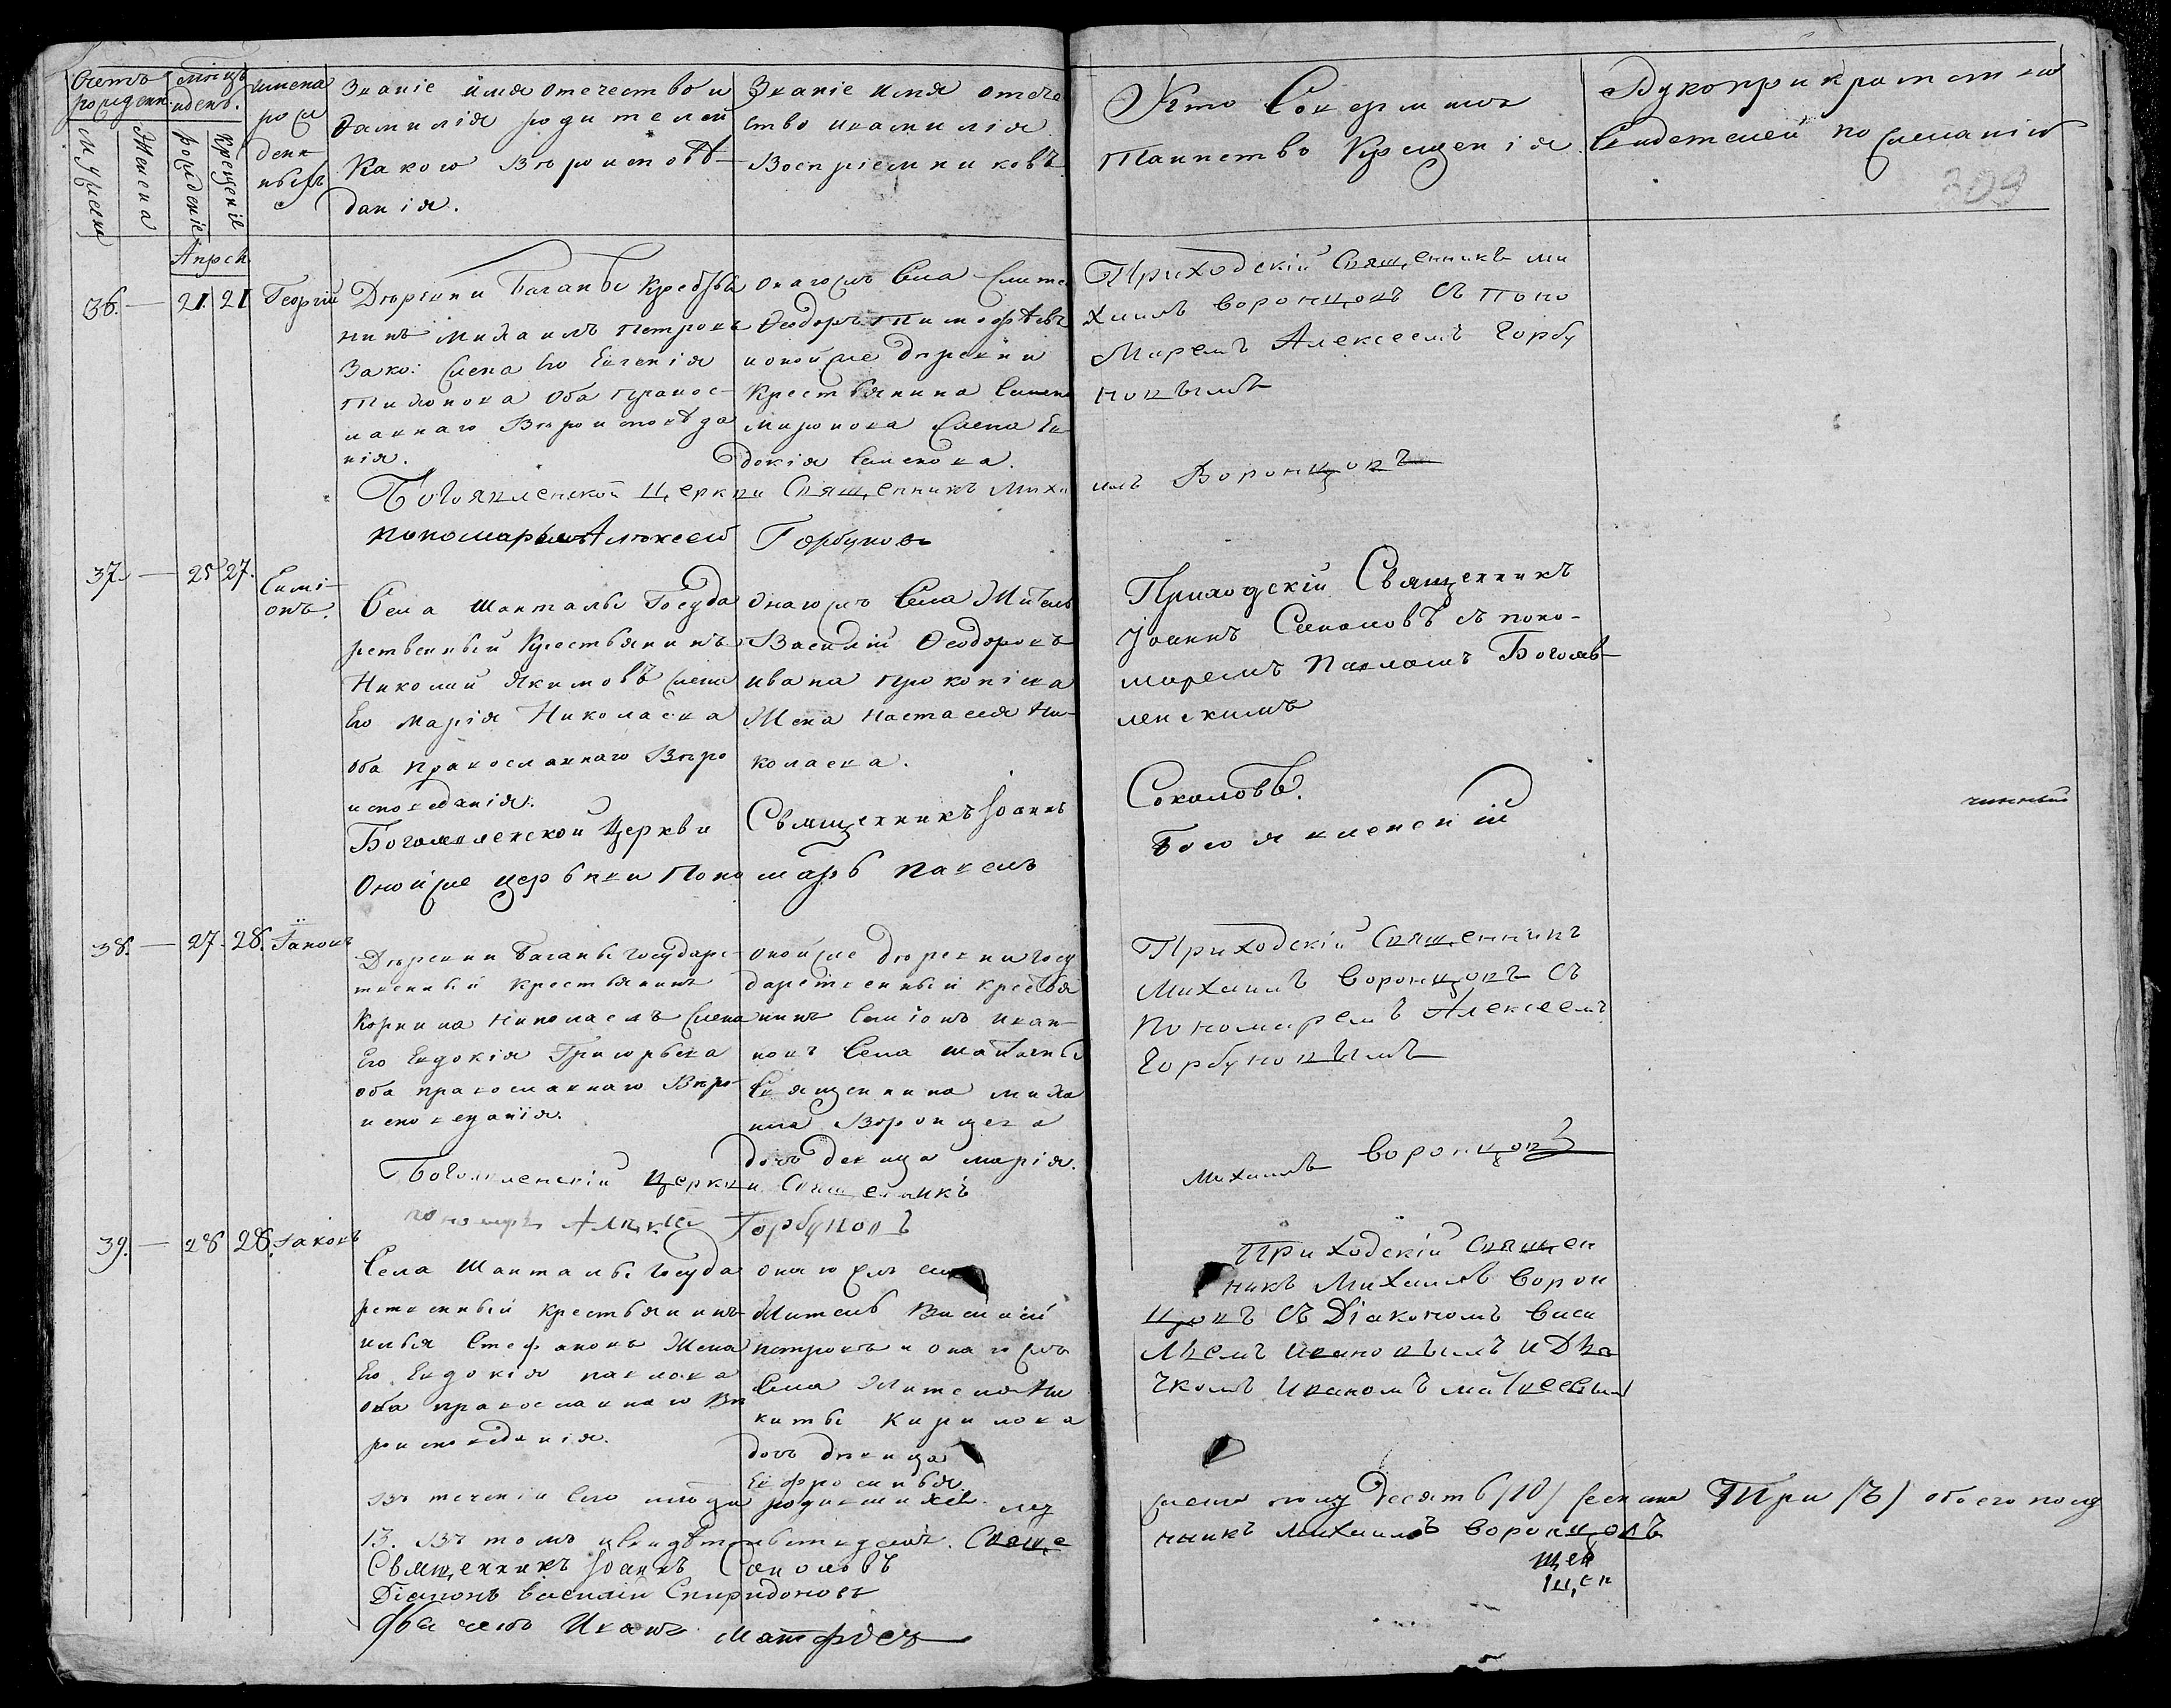 Счетъ рожденн.
Мужеска
Женена
мѣсяцъ и день.
рожденіе
Крещеніе
Имена
рож
ден-
ныхъ
Званіе имя отечество и
Фамилія родителей
Какого Вѣроисповѣ-
данія.
Званіе имя отече
ство и фамилія
Воспріемниковъ.
Кто Совершилъ
Таинство Крещенія
Рукоприкладство
Свидетелей по желанію
309
Апрель
36. — 21 21 Георгій
Деревни Баганы Крестья
нинъ Михаилъ Петровъ
Зако: Жена Его Евгенія
Тихонова Оба правос-
лавнаго Вѣроисповѣда
нія.
Онагожъ Села Жите
Ѳеодоръ Тимофѣевъ
и онойже деревни
Крестьянина Семена
Миронова Жена Ев-
докія Семенова.
Приходскій Священникъ Ми
хаилъ Воронцовъ Съ Поно
Маремъ Алексеемъ Горбу
новымъ
Богоявленской Церкви Священникъ Миха
илъ Воронцовъ
Пономарь Алексей Горбуновъ
37. — 25 27. Симі-
онъ.
Села Шанталы Госуда
рственный Крестьянинъ
Николай Якимовъ жена
Его Марія Николаева
Оба православнаго Вѣро
исповеданія.
Онагожъ Села Житель
Василій Ѳеодоровъ
Ивана Прокопіева
Жена Настасея Ни-
колаева.
Приходскій Священникъ
Іоаннъ Соколовъ съ поно-
маремъ Павломъ Богояв-
ленскимъ
Богоявленской Церкви Священникъ Іоаннъ
Соколовъ.
Онойже церьвки Поно марь Павелъ
Богоявленскій
чинный
38. — 27. 28. Іаковъ
Деревни Баганы Государс-
твенный Крестьянинъ
Корнила Николаевъ жена
Его Евдокія Григорьева
оба православнаго Вѣро-
исповеданія.
онойже деревни Госу
дарственный Крестья
нинъ Симіонъ Иван-
новъ Села Шанталы
Священника Миха
ила Воронцова
дочь девица Марія.
Приходскій Священникъ
Михаилъ Воронцовъ Съ
Пономаремъ Алексеемъ
Горбуновымъ
Богоявленскій Церкви Священникъ
Михаилъ Воронцовъ
пономарь Алексей Горбуновъ
39. — 28 28. Іаковъ
Села Шанталы Госуда
рственный крестьянинъ
Илья Стефановъ Жена
Его Евдокія Павлова
Оба православнаго Вѣ
роисповеданія.
онагожъ села
Житель Василій
Петровъ и онагожъ
Села Жителя Ни
киты Кирилова
дочь девица
Ефросинья.
Приходскій Священ
никъ Михаилъ Ворон
цовъ Съ Діакономъ Васи
льемъ Ивановымъ и Дья
чкомъ Иваномъ Матвеевым
Въ теченіи Сего м-ца родившихся муз
жеска полу Десять /10/ женска Три /3/ обоего полу
13. Въ томъ и свидѣтельствуемъ. Свяще
нникъ Михаилъ Воронцовъ
щен
щен
Священникъ Іоаннъ Соколовъ
Діаконъ Василій Спиридоновъ
Дьячекъ Иванъ Матфеев